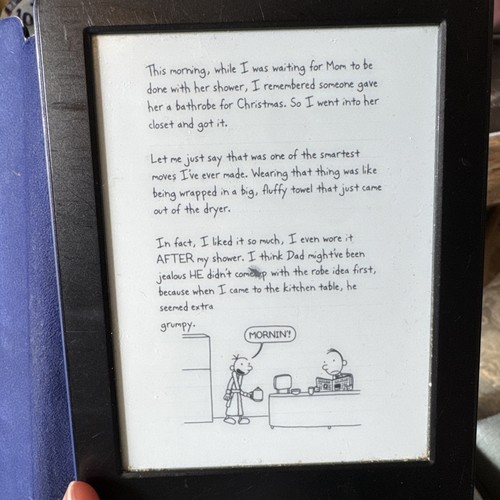 This morning, while I was waiting for Mom to be
done with her shower, I remembered someone gave
her a bathrobe for Christmas. So I went into her
closet and got it.
Let me just say that was one of the smartest
moves I've ever made. Wearing that thing was like
being wrapped in a big, fluffy towel that just came
out of the dryer.
In fact, I liked it so much, I even wore it
AFTER my shower. I think Dad might've been
jealous HE didn't come up with the robe idea first,
because when I came to the kitchen table, he
seemed extra
grumpy.
MORNIN'!